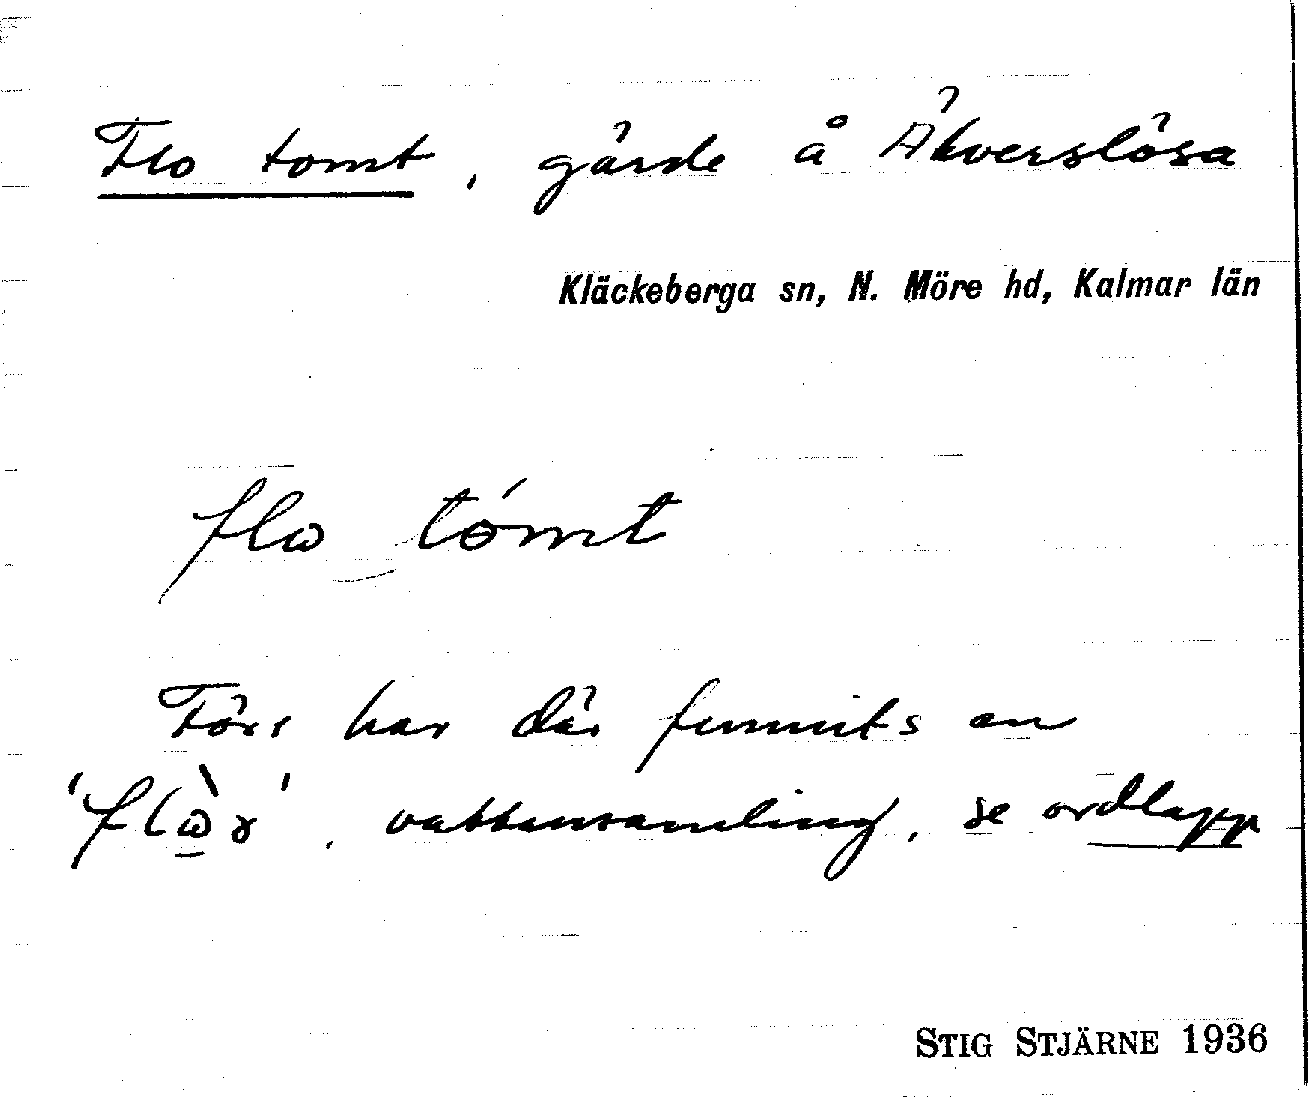 Flo tomt, gärde å Älverslösa
Kläckeberga sn, N. Möre hd, Kalmar län
flω tómt
Förr har där funnits en
'flὼr', vattensamling, se ordlapp
STIG STJÄRNE 1936